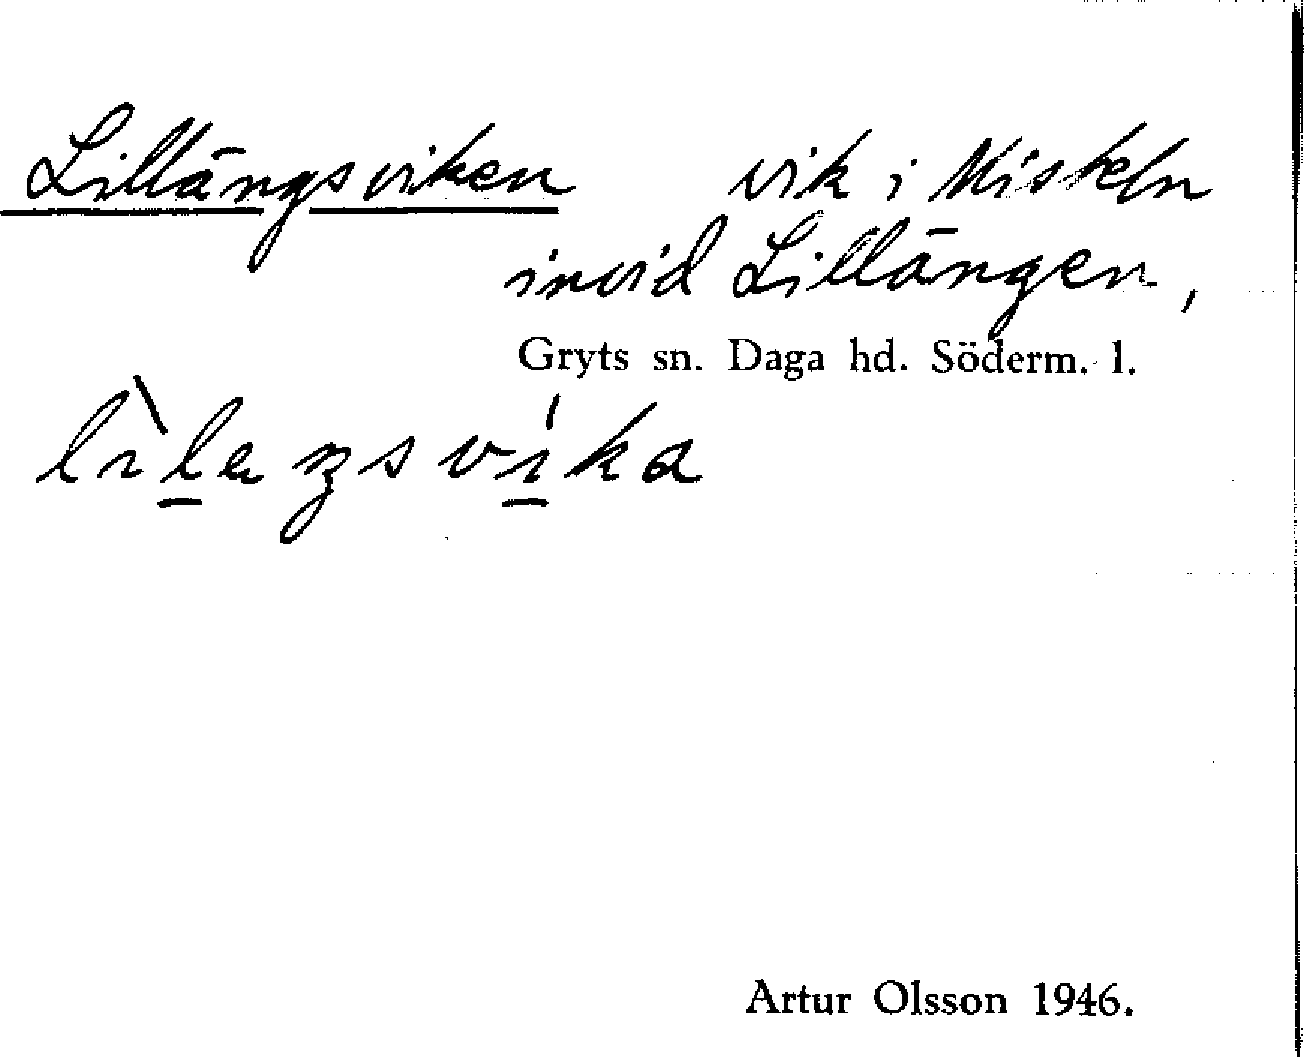 Lillängsviken vik i Misteln
invid Lillängen,
Gryts sn. Daga hd. Söderm. l.
Artur Olsson 1946.